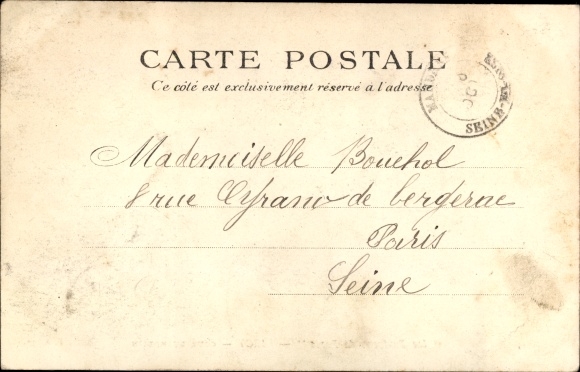 CARTE POSTALE
Ce côté est exclusivement réservé à l'adresse
SEINE-&-
Mademoiselle Bouchol
8 rue Cyrano de bergerac
Paris
Seine